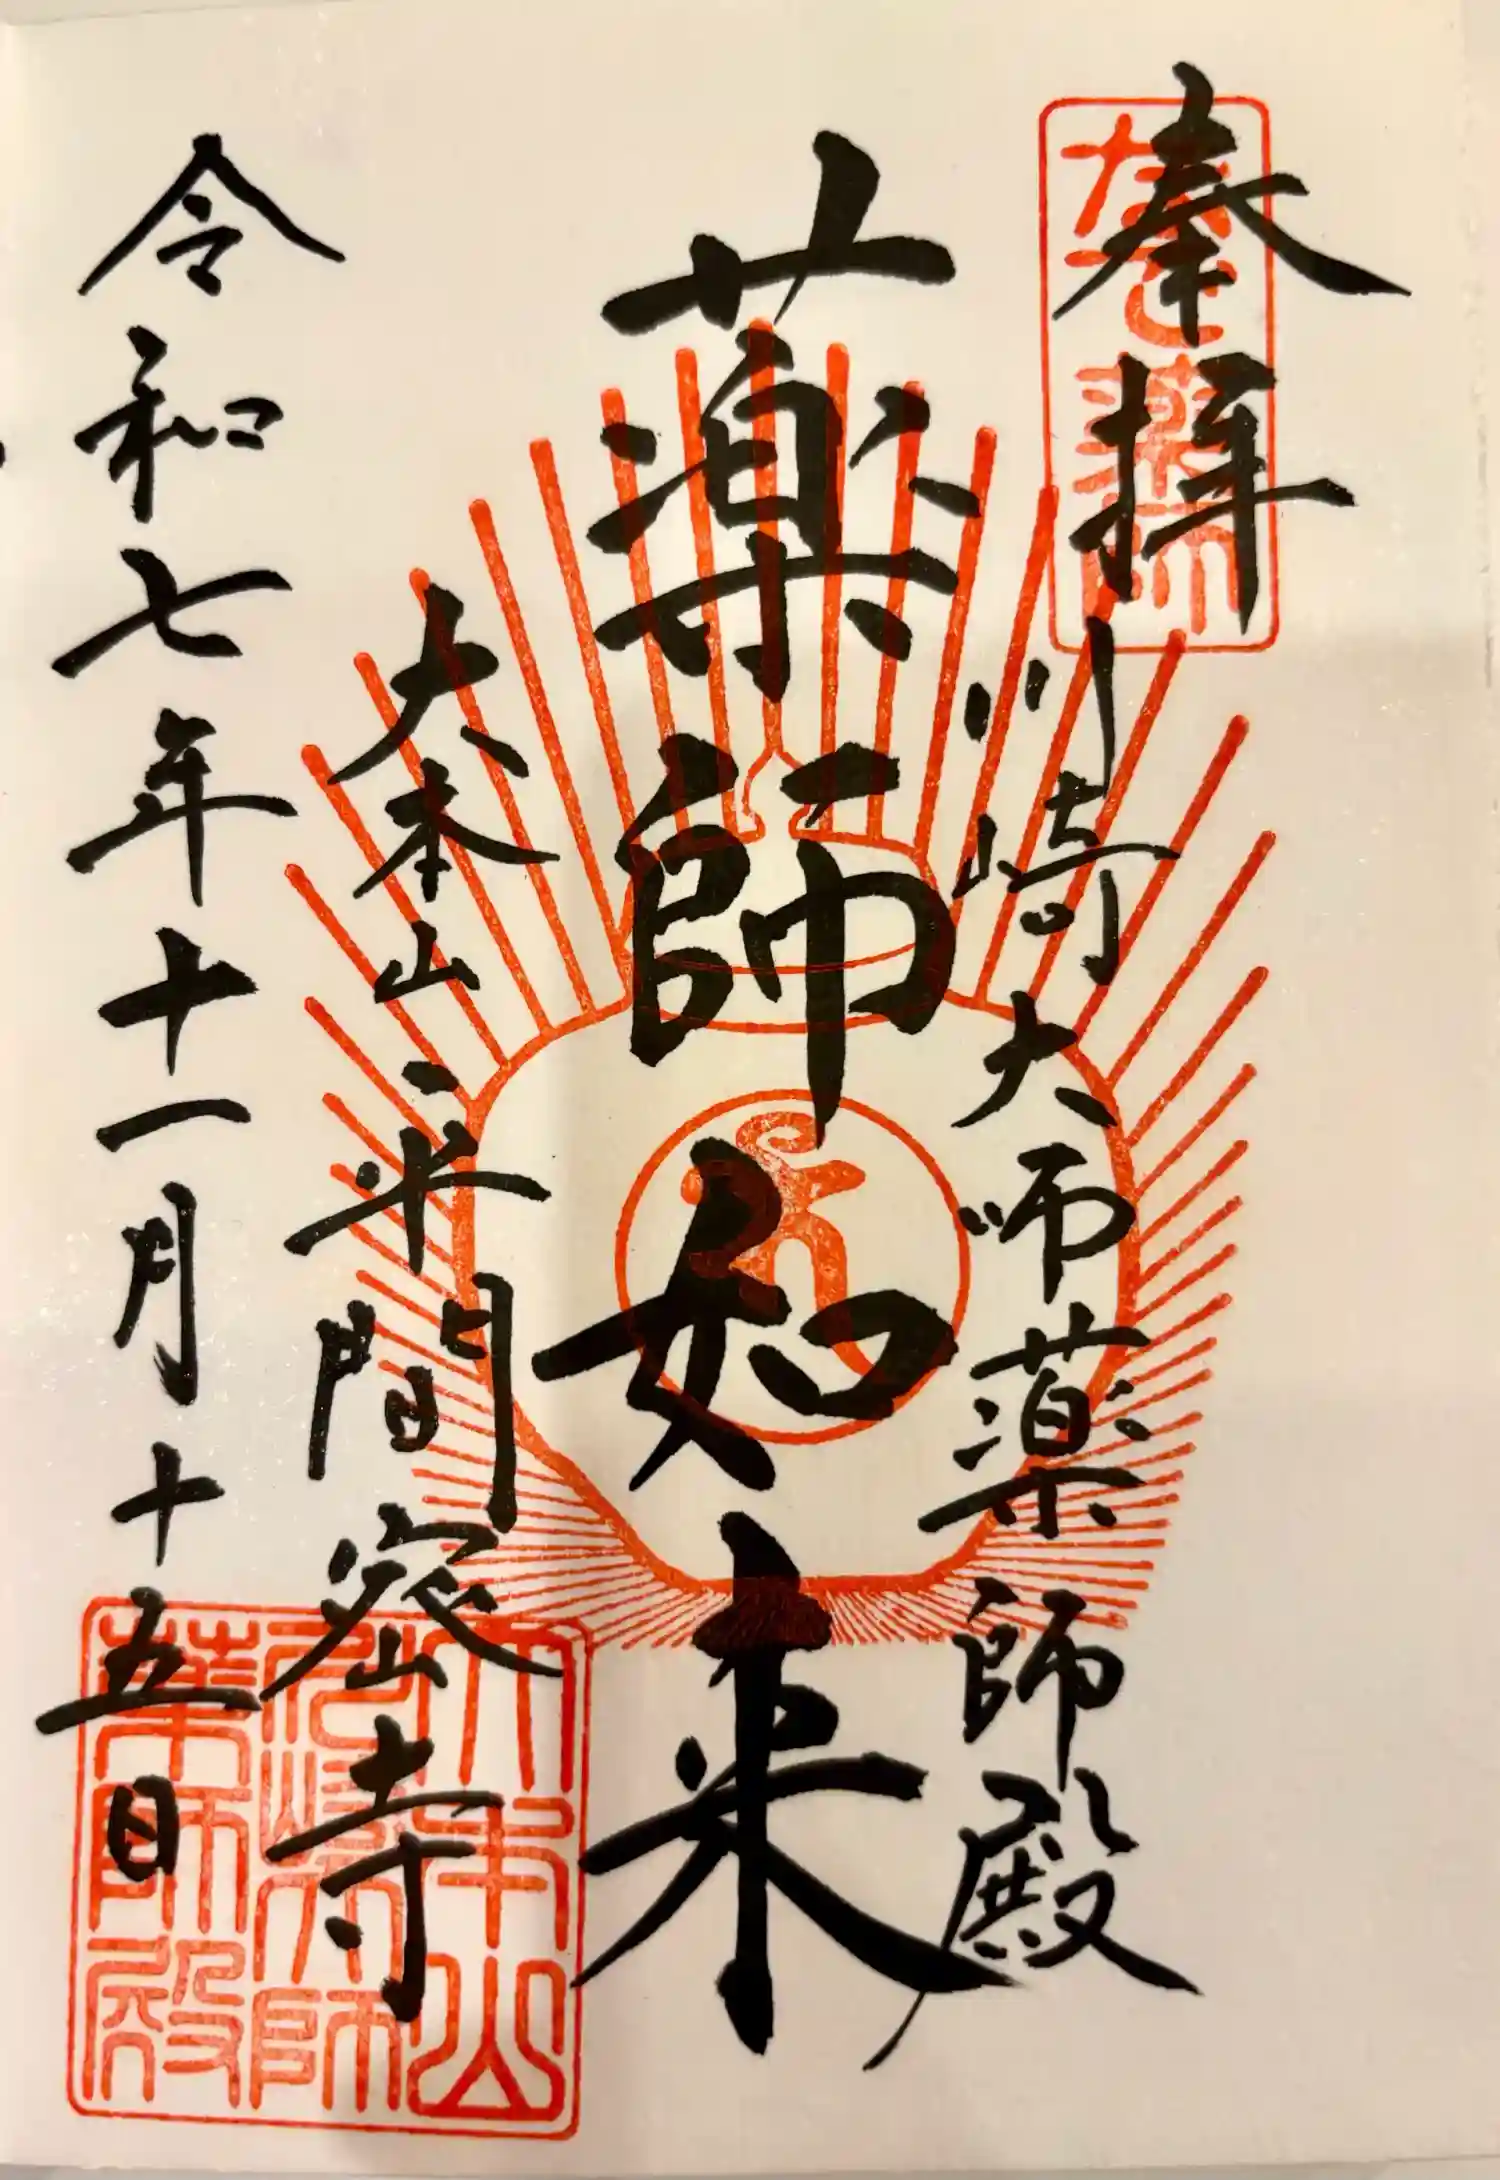 奉拝
なで薬師
川崎大師薬師殿
薬師如来
大本山平間寺
令和七年十一月十五日
大本山
川崎大師
薬師殿